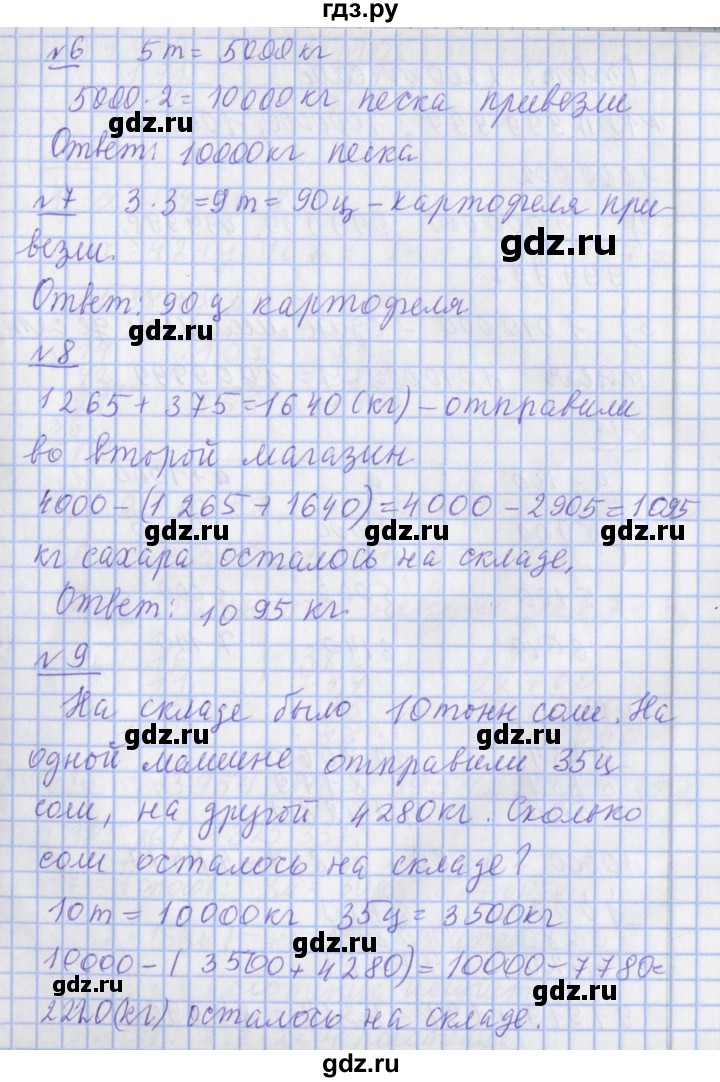 гдз.ру
№6 5т = 5000кг
5000·2=10000кг песка привезли
gdz.ru gdz.ru
Ответ: 10000кг песка
№7 3·3=9т=90ц-картофеля при-
везли.
gdz.ru
Ответ: 90ц картофеля
gdz.ru
№8
1265+375=1640(кг)-отправили
gdz.ru gdz.ru
во второй магазин
4000-(1265+1640)=4000-2905=1095
gdz.ru gdz.ru gdz.ru
кг сахара осталось на складе.
Ответ: 1095 кг.
gdz.ru
№9
На складе было 10тонн соли. На
gdz.ru gdz.ru
одной машине отправили 35ц
соли, на другой 4280кг. Сколько
gdz.ru
соли осталось на складе?
gdz.ru
10т=10000кг 35ц=3500кг
gdz.ru
10000-(3500+4280)=10000-7780=
gdz.ru gdz.ru
2220(кг) осталось на складе.
gdz.ru